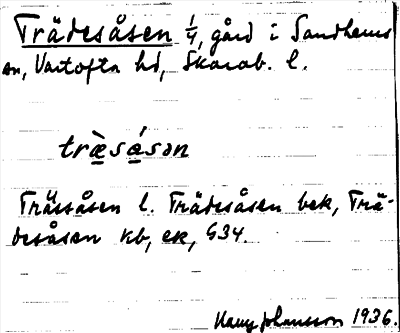 Trädesåsen 1/4, gård i Sandhems
sn, Vartofta hd, Skarab. l.
træ̀sǻsən
Trässåsen l. Trädesåsen bek, Trä-
desåsen kb, ek, G34.
Harry Johansson 1936.